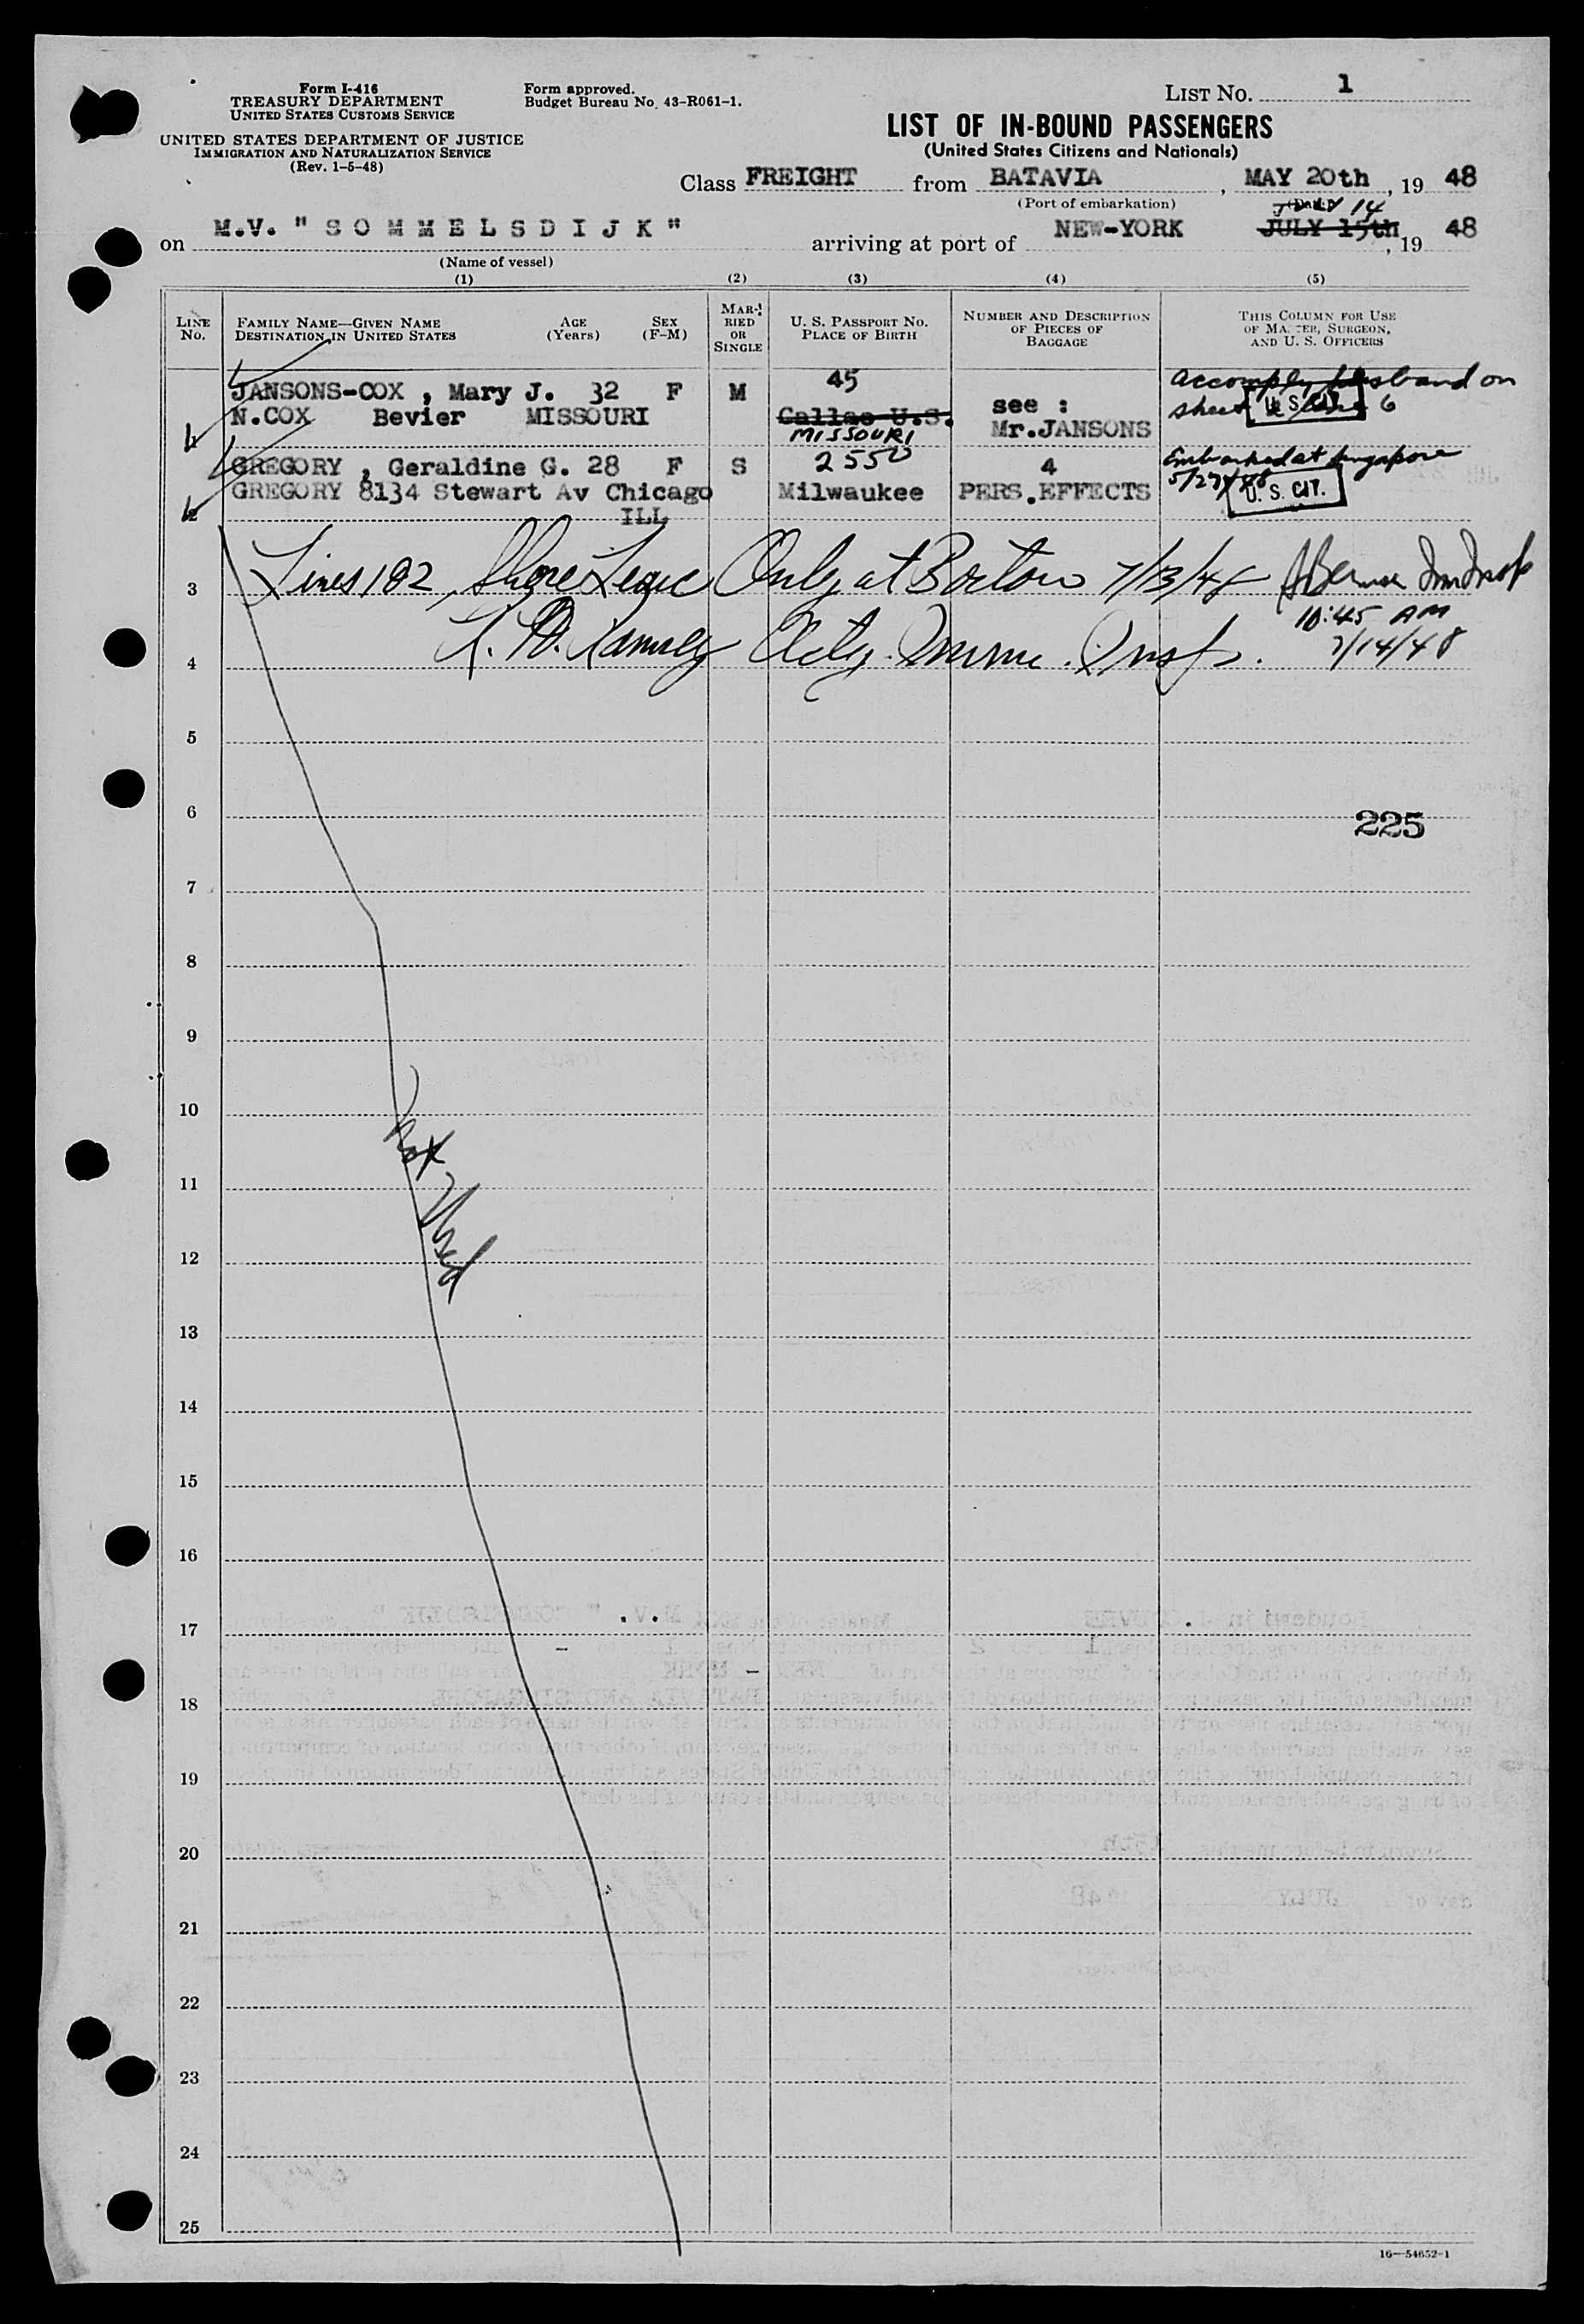 Form I-416
TREASURY DEPARTMENT
UNITED STATES CUSTOMS SERVICE
UNITED STATES DEPARTMENT OF JUSTICE
IMMIGRATION AND NATURALIZATION SERVICE
(Rev. 1-5-48)
Form approved.
Budget Bureau No. 43-R061-1.
LIST NO. 1
LIST OF IN-BOUND PASSENGERS
(United States Citizens and Nationals)
Class FREIGHT from BATAVIA, MAY 20th, 19 48
(Port of embarkation)
14
on M.V. "SOMMELSDIJK" arriving at port of NEW-YORK JULY 15th, 19 48
(Name of vessel)
(1) (2) (3) (4) (5)
LINE NO.
FAMILY NAME—GIVEN NAME AGE (Years) SEX (F-M)
DESTINATION IN UNITED STATES
MARRIED OR SINGLE
U. S. PASSPORT NO.
PLACE OF BIRTH
NUMBER AND DESCRIPTION
OF PIECES OF
BAGGAGE
THIS COLUMN FOR USE
OF MASTER, SURGEON,
AND U. S. OFFICERS
JANSONS-COX , Mary J. 32 F M 45 see : accomply husband on
N.COX Bevier MISSOURI Callao U.S. Mr.JANSONS sheet line 6
MISSOURI
U. S. CIT.
GREGORY , Geraldine G. 28 F S 2550 4 Embarked at Singapore
5/27/48
GREGORY 8134 Stewart Av Chicago Milwaukee PERS.EFFECTS U. S. CIT.
ILL
3 Lines 1&2, Shore Leave Only at Boston 7/13/48 Imm Insp
10:45 AM
4 Actg. Imm. Insp. 7/14/48
5
6
225
7
8
9
10
11
Not Used
12
13
14
15
16
17
18
19
20
21
22
23
24
25
16—54652-1